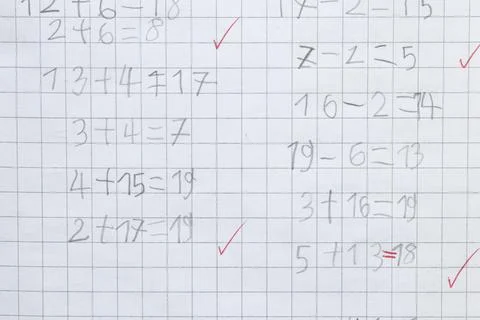 12+6=18
2+6=8
13+4=17
3+4=7
4+15=19
2+17=19
17-2=15
7-2=5
16-2=14
19-6=13
3+16=19
5+13=18